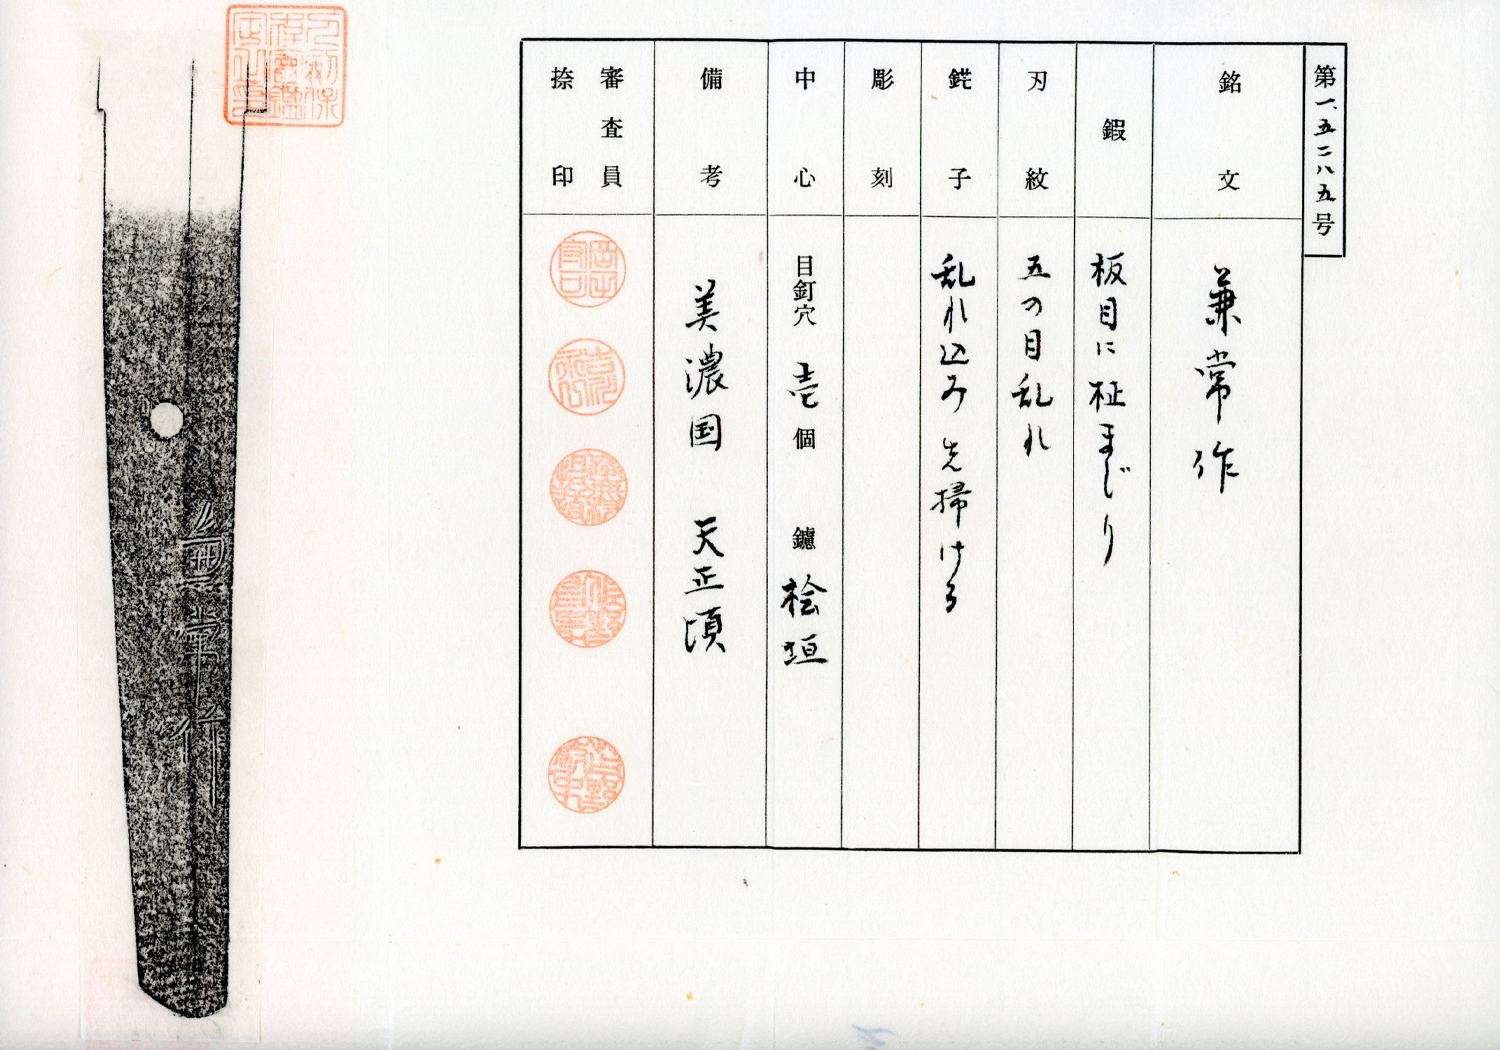 第一、五二八五号
銘文
兼常作
鍜
板目に柾まじり
刃紋
五の目乱れ
鋩子
乱れ込み先掃ける
彫刻
中心
目釘穴 壱個 鑢 桧垣
備考
美濃国 天正頃
審査員
捺印
兼常作